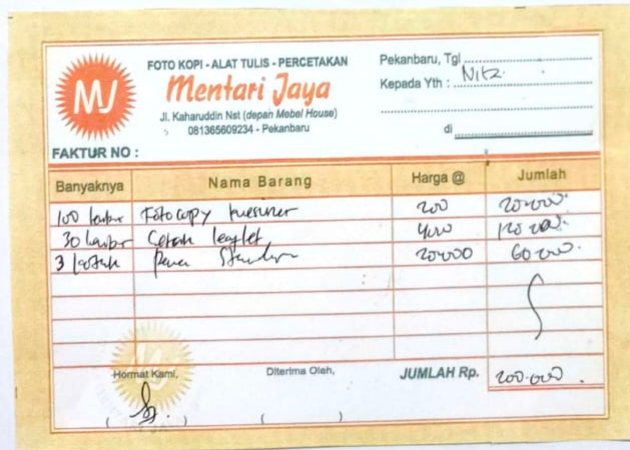 FOTO KOPI - ALAT TULIS - PERCETAKAN
MJ
Mentari Jaya
Jl. Kaharuddin Nst (depan Mebel House)
081365609234 - Pekanbaru
Pekanbaru, Tgl
Kepada Yth : Nitz.
di
FAKTUR NO :
Banyaknya Nama Barang Harga @ Jumlah
100 lembar Fotocopy kuesioner 200 20.000.
30 lembar Cetak leaflet 4000 120.000.
3 kotak pena Standar 20.000 60.000.
Hormat Kami, Diterima Oleh, JUMLAH Rp. 200.000.